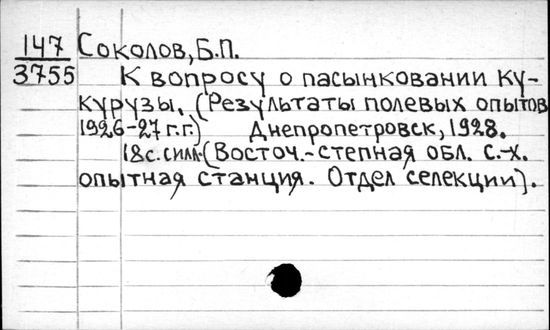 147 Соколов, Б.П.
3755 К вопросу о пасынковании ку-
курузы. (Результаты полевых опытов
1926-27 г.г.) Днепропетровск, 1928.
18с. силл. (Восточ.-степная обл. с.-х.
опытная станция. Отдел селекции).